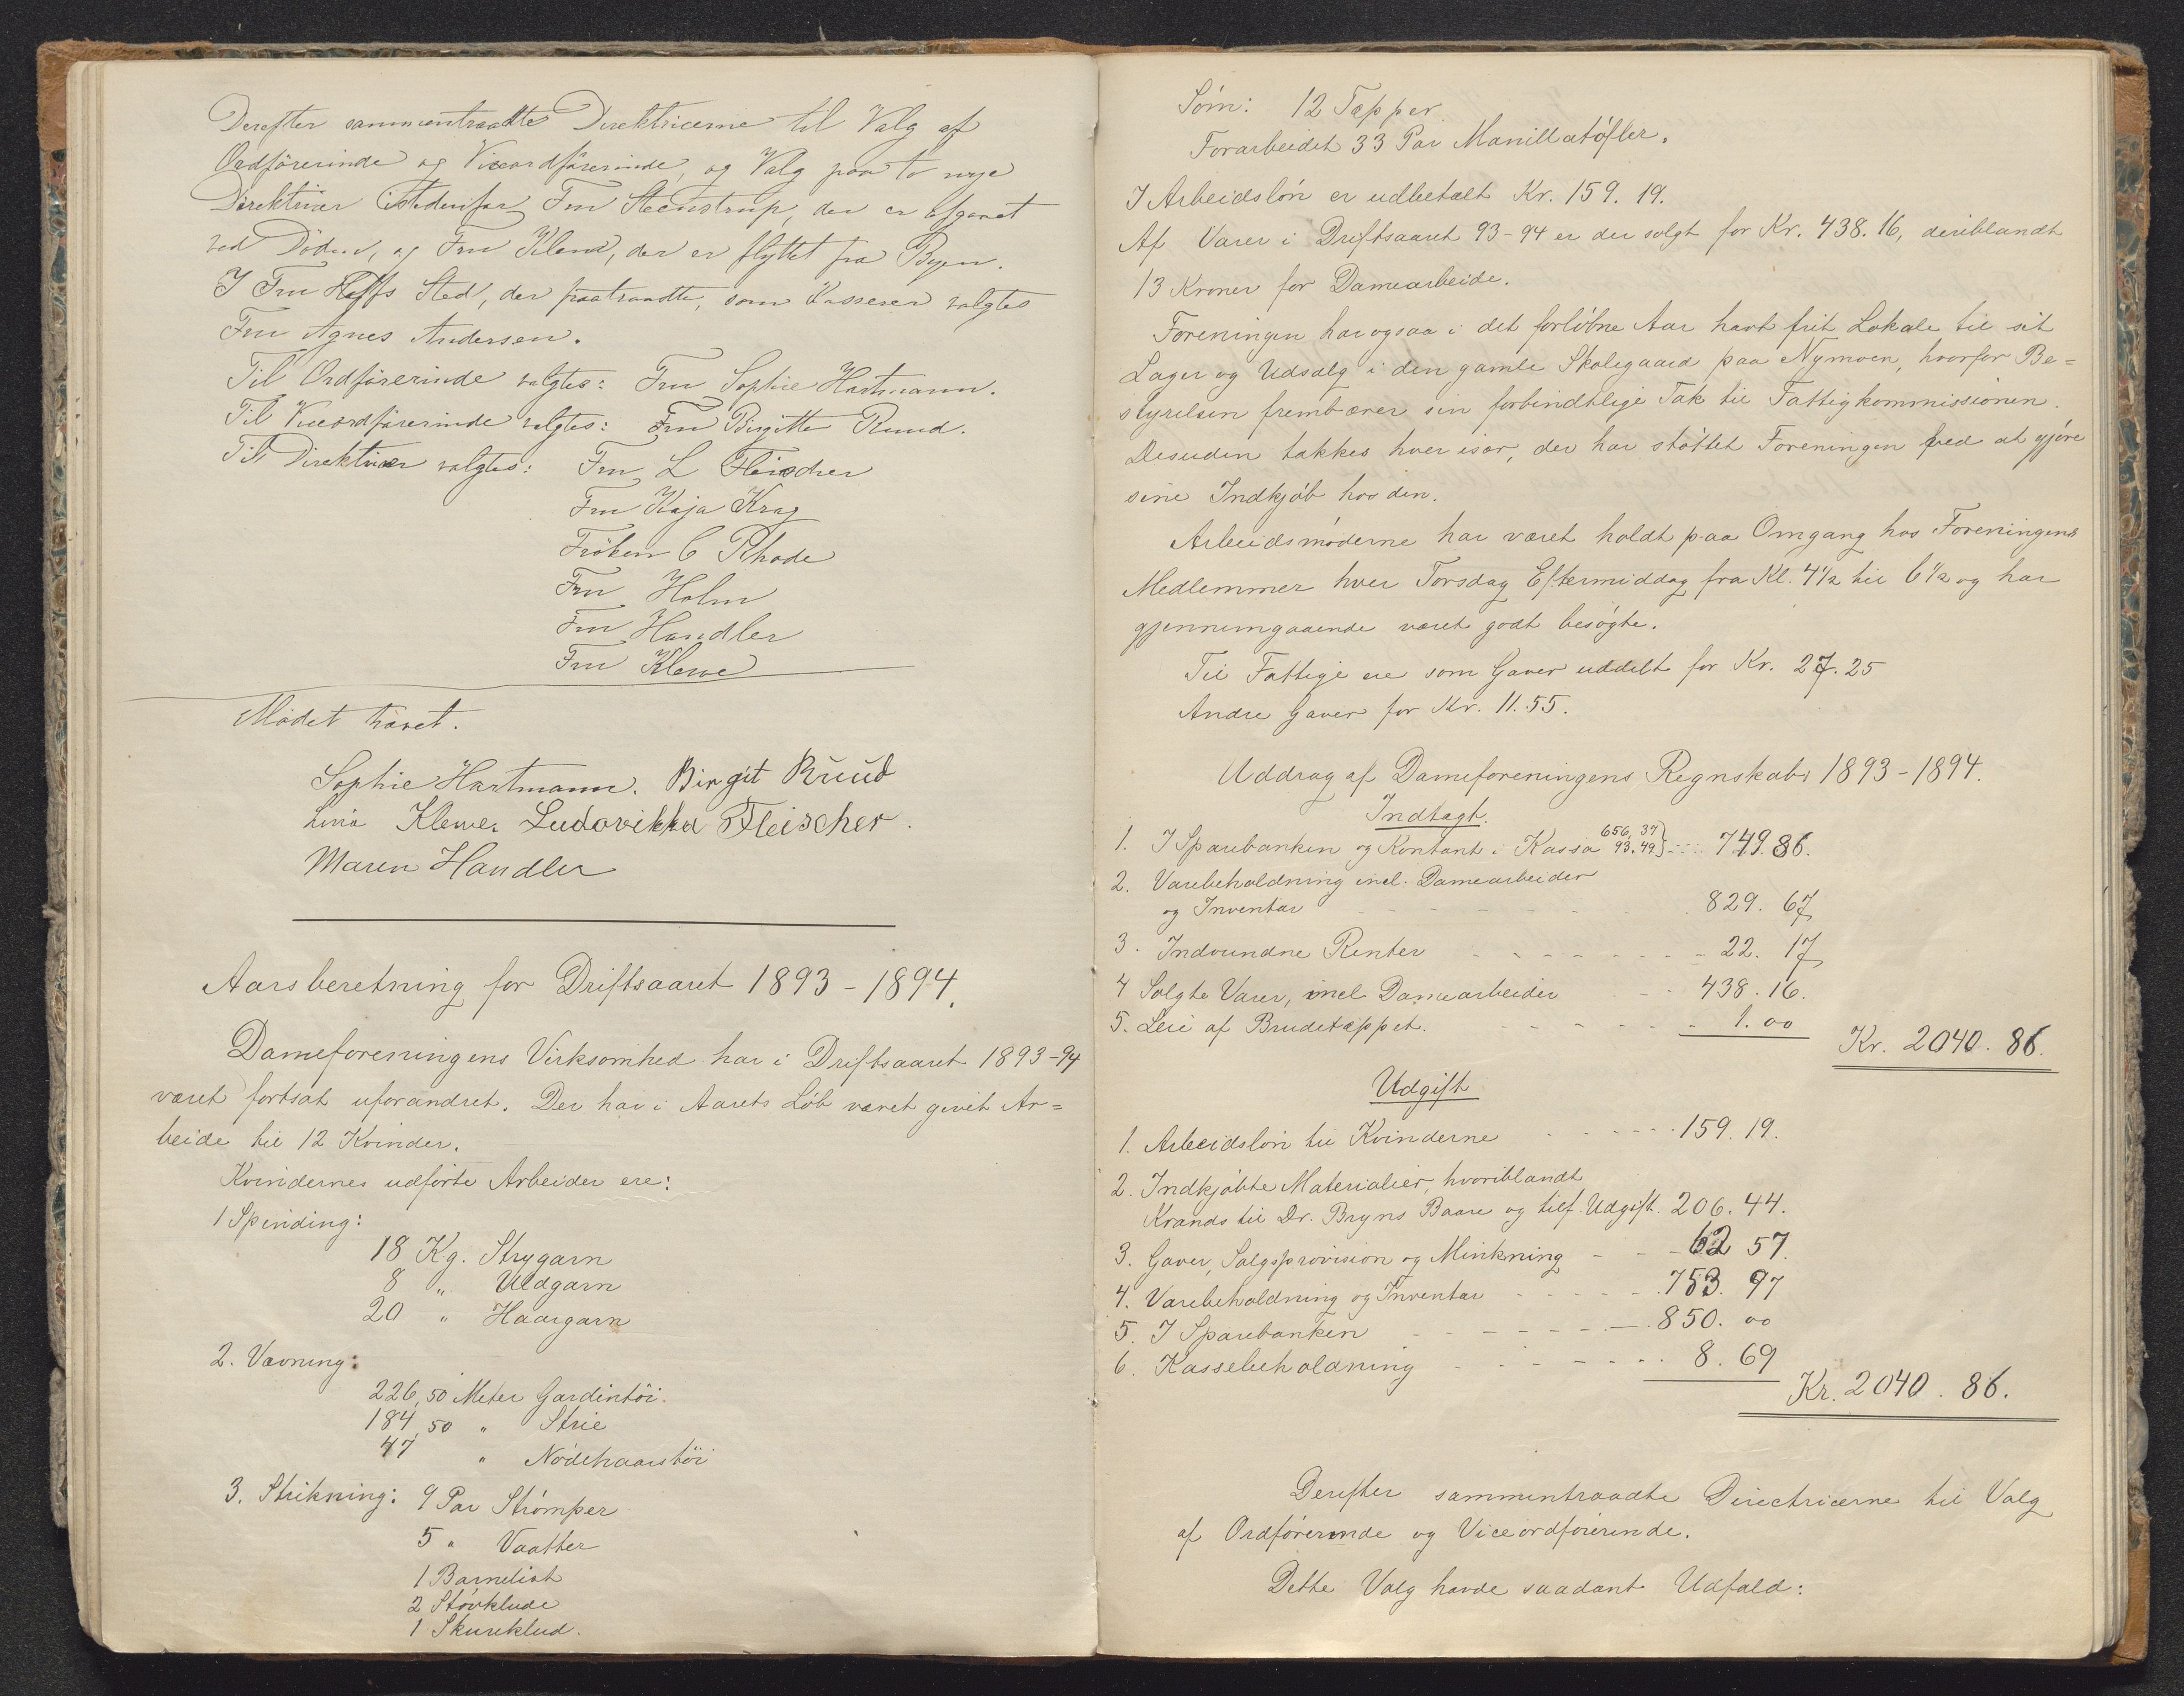 Derefter sammentraadte Direktricerne til Valg af
Ordförerinde og Viceordförerinde, og Valg paa to nye
Direktricer istedenfor Fru Steenstrup, der er afgaaet
ved Döden, og Fru Kiland, der er flyttet fra Byen.
I Fru Hoffs Sted, der fratraadte, som Kasserer valgtes
Fru Agnes Andersen.
Til Ordförerinde valgtes: Fru Sophie Hartmann.
Til Viceordförerinde valgtes: Fru Birgitte Ruud.
Til Direktricer valgtes: Fru L Fleischer
Fru Kaja Krag
Fröken C Rhode
Fru Holm
Fru Handler
Fru Klewe
Mödet hævet.
Sophie Hartmann. Birgit Ruud
Lina Klewe. Ludovikka Fleischer.
Maren Handler
Aarsberetning for Driftsaaret 1893-1894.
Dameforeningens Virksomhed har i Driftsaaret 1893-94
været fortsat uforandret. Der har i Aarets Löb været givet Ar=
beide til 12 Kvinder.
Kvindernes udförte Arbeider ere:
1 Spinding:
18 Kg. Strygarn
8 " Uldgarn
20 " Haargarn
2. Vævning:
226,50 Meter Gardintöi.
184,50 " Strie
47 " Nödehaarstöi
3. Strikning: 9 Par Strömper
5 " Vaatter
1 Barnelist
2 Stövklude
1 Skureklud.
Söm: 12 Tæpper
Forarbeidet 33 Par Manillatöfler.
I Arbeidslön er udbetalt Kr. 159.19.
Af Varer i Driftsaaret 93-94 er der solgt for Kr. 438.16, deriblandt
13 Kroner for Damearbeide.
Foreningen har ogsaa i det forlöbne Aar havt frit Lokale til sit
Lager og Udsalg i den gamle Skolegaard paa Nymoen, hvorfor Be=
styrelsen frembærer sin forbindtlige Tak til Fattigkommissionen.
Desuden takkes hver især, der har stöttet Foreningen ved at gjöre
sine Indkjöb hos den.
Arbeidsmöderne har været holdt paa Omgang hos Foreningens
Medlemmer hver Torsdag Eftermiddag fra Kl. 4½ til 6½ og har
gjennemgaaende været godt besögte.
Til Fattige ere som Gaver uddelt for Kr. 27.25
Andre Gaver for Kr. 11.55.
Uddrag af Dameforeningens Regnskab 1893-1894.
Indtægt.
1. I Sparebanken og Kontant i Kassa 656,37 93.49 } 749.86.
2. Varebeholdning incl. Damearbeider
og Inventar 829. 67
3. Indvundne Renter 22. 17
4 Solgte Varer, incl Damearbeider 438.16.
5. Leie af Brudetæppet. 1.00
Kr. 2040.86.
Udgift
1. Arbeidslön til Kvinderne 159.19.
2. Indkjöbte Materialier, hvoriblandt
Krands til Dr. Bryns Baare og tilf. Udgift. 206.44.
3. Gaver, Salgsprovision og Minkning 62 57.
4. Varebeholdning og Inventar 753. 97
5. I Sparebanken 850. 00
6. Kassebeholdning 8. 69
Kr. 2040.86.
Derefter sammentraadte Directricerne til Valg
af Ordförerinde og Viceordförerinde.
Dette Valg havde saadant Udfald: